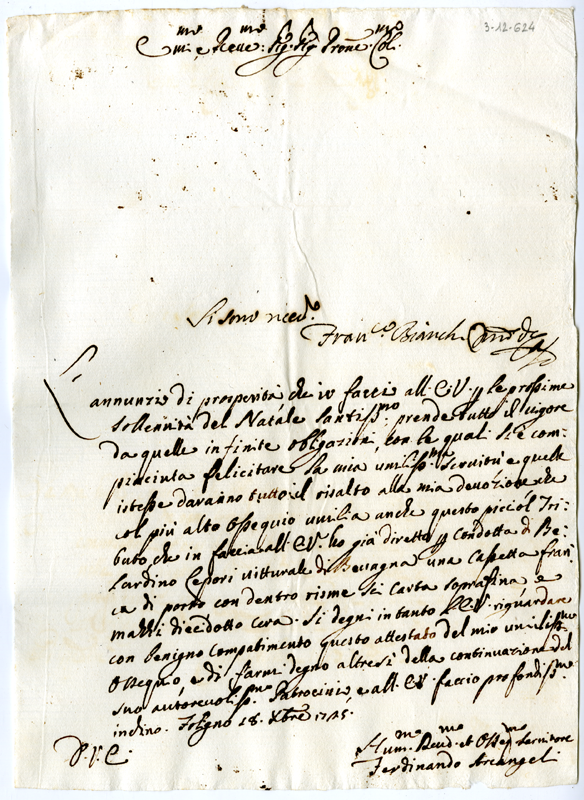 3-12-624
Em.mo e Reve.mo Sig. Sig. Prone Col.mo
Si sono riceu.
Fran.co Bianch
L'annunzio di prosperità, che io facci all' E.V. p le prossime
sollennità del Natale santiss.mo prende tutto il vigore
da quelle infinite obligazioni, con le quali si è com-
piaciuta felicitare la mia umiliss.ma servitù e quelle
istesse daranno tutto il risalto alla mia devozione che
col più alto ossequio umilia anche questo picciol Tri-
buto, che in faccia all' E.V. ho già diretto p condotta di Be-
lardino Lepori vitturale di Bevagna una Cassetta fran-
ca di porto con dentro risme sei carta soprafina, e
mazzi dieciotto cera. Si degni intanto l'E.V. riguardare
con benigno compatimento questo attestato del mio umiliss.mo
Ossequio, e di farmi degno altresì della continuazione del
suo autorevoliss.mo Patrocinio, e all' E.V. faccio profondiss.mo
inchino. Foligno 18. Xbre 1725.
D. V. E.
Hum.mo Deud.mo et Osseq.mo Servitore
Ferdinando Arcangeli